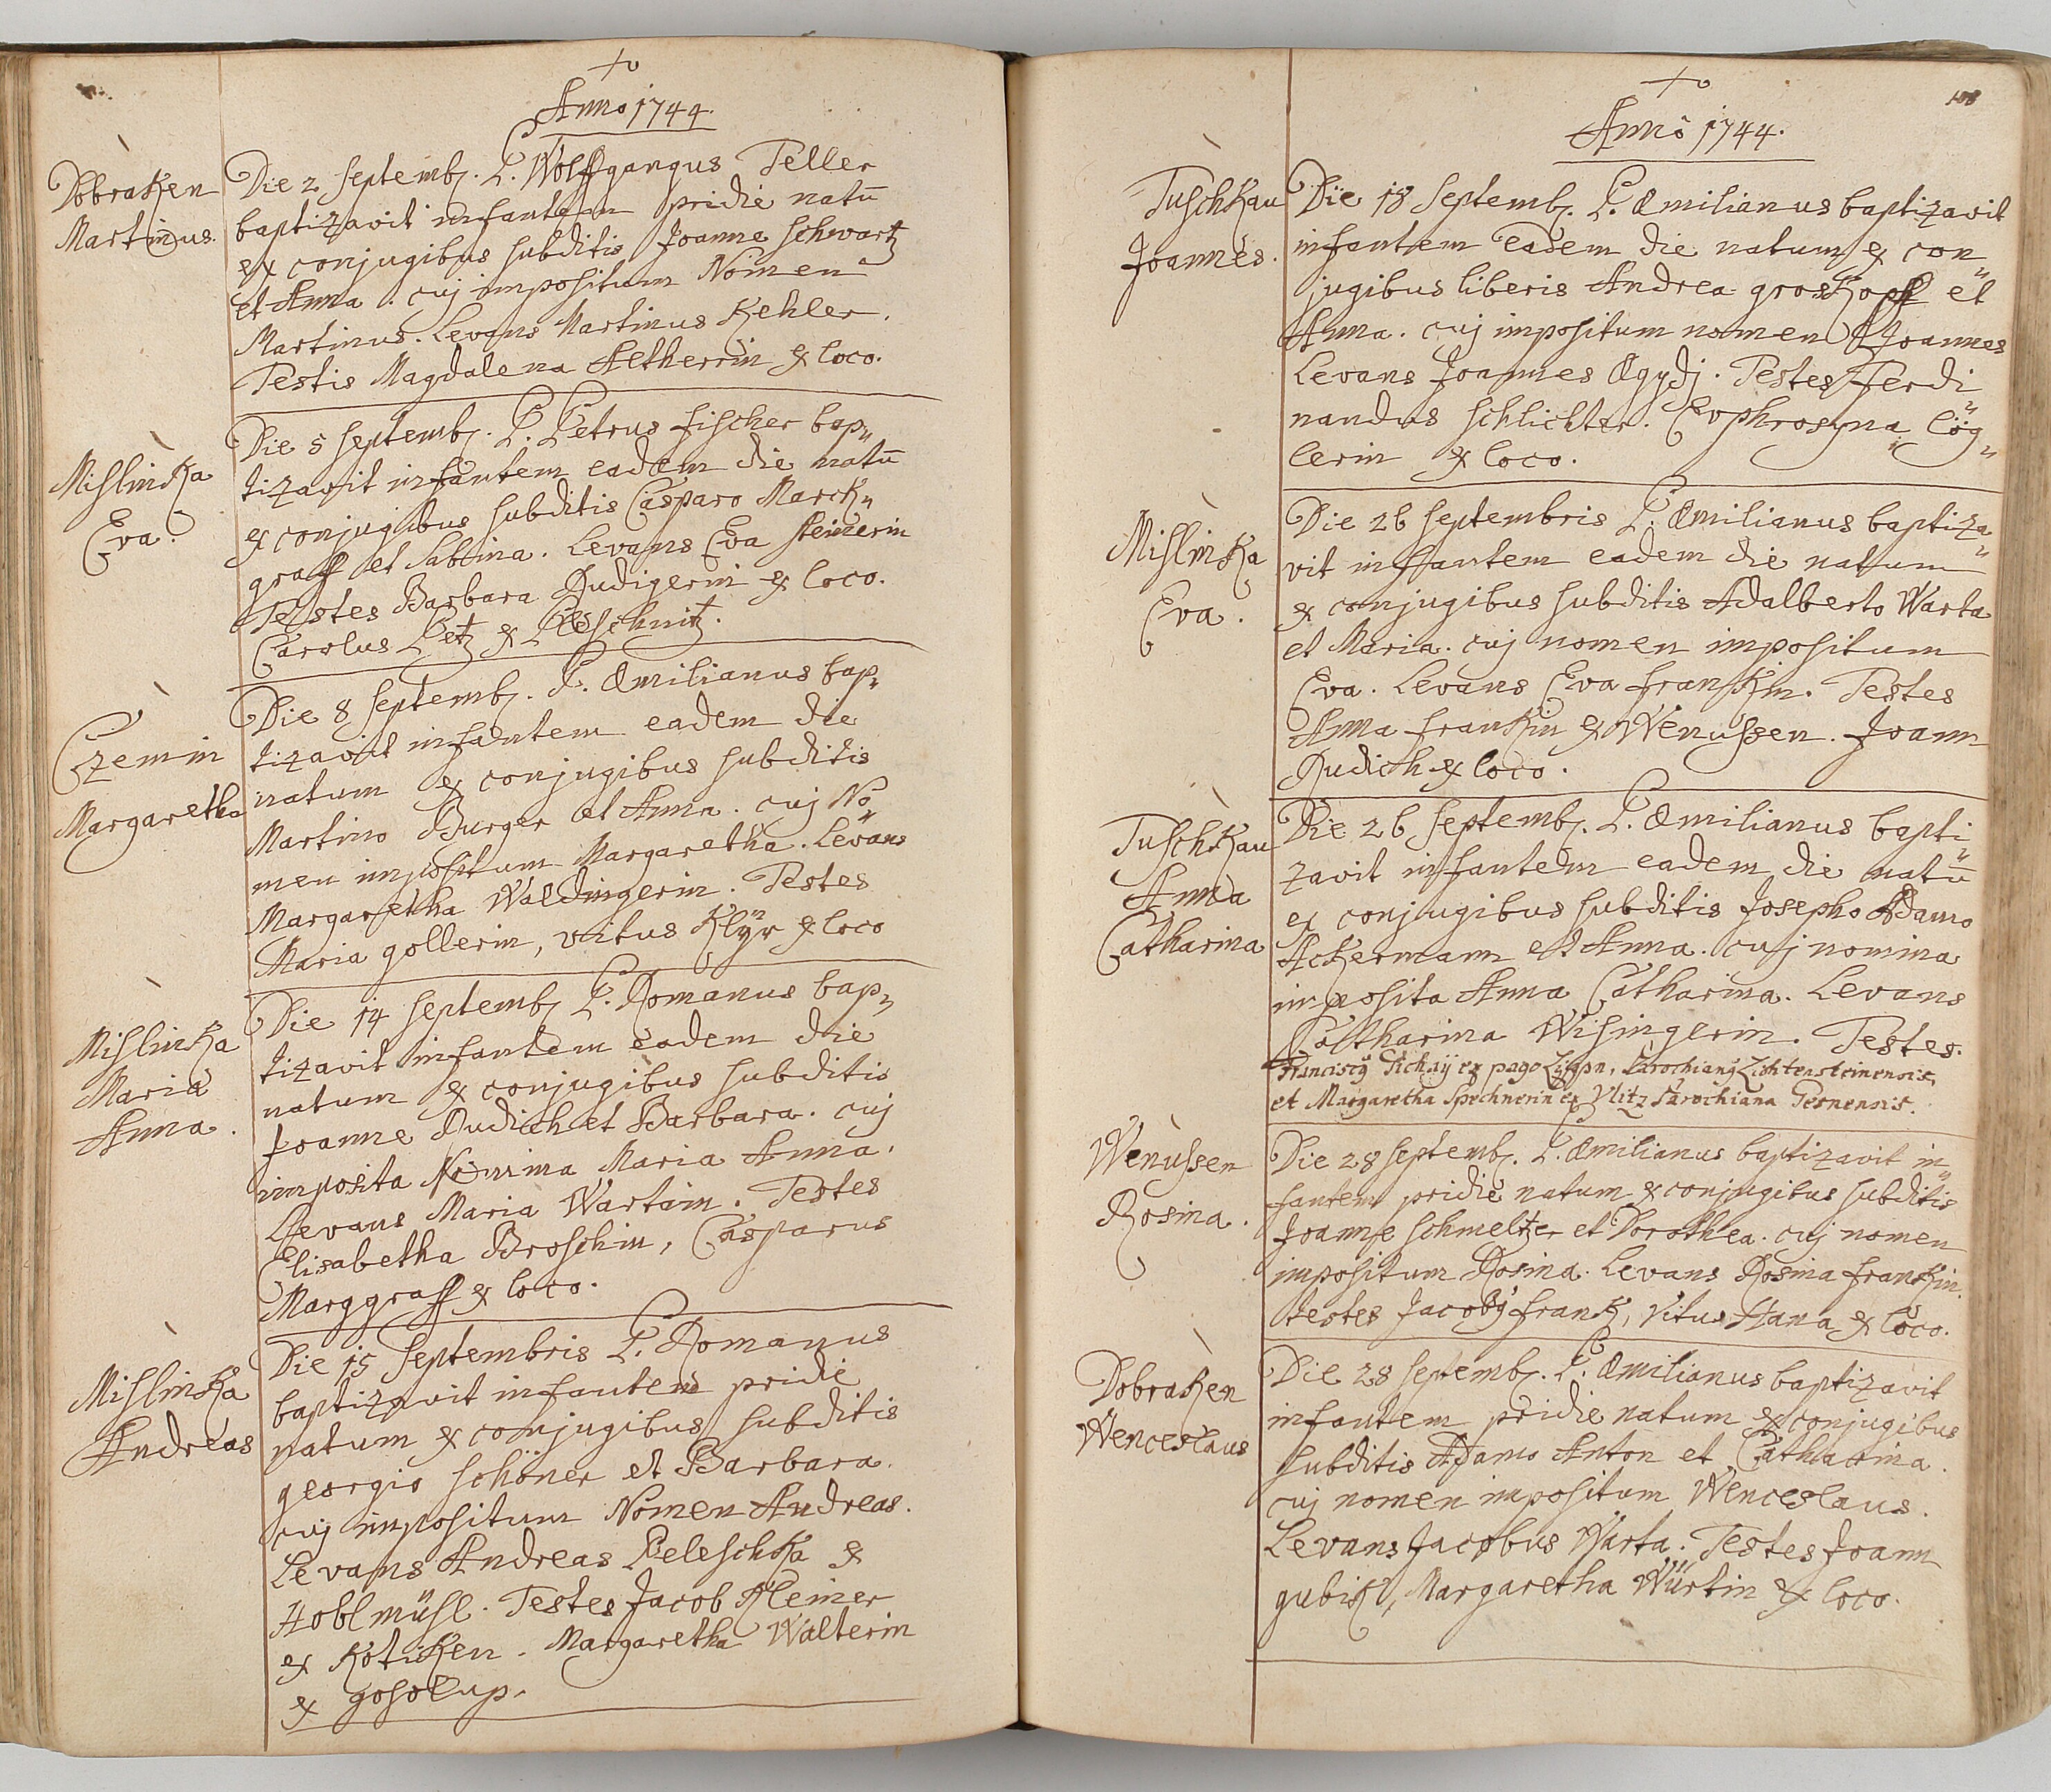 Anno 1744.
Dobraken
Martinus.
Die 2 Septemb. P. Wolffgangus Teller
baptizavit infantem pridie natū
ex conjugibus subditis Joanne Schwartz
et Anna. cuj impositum Nomen
Martinus. Levans Martinus Kehler.
Testis Magdalena Aetherrin ex loco.
Mislinka
Eva.
Die 5 Septemb. P. Petrus Fischer bap„
tizavit infantem eadem die natū
ex conjugibus subditis Casparo Marck„
graff et Sabina. Levans Eva Steinerin
Testes Barbara Rudigerin ex loco.
Carolus Petz ex Pleschnitz.
Czemin
Margaretha
Die 8 Septemb. P. Æmilianus bap„
tizavit infantem eadem die
natum ex conjugibus subditis
Martino Burger et Anna. cuj No„
men impositum Margaretha. Levans
Margaretha Waldingerin. Testes
Maria Gollerin, Vitus Klÿr ex loco
Mislinka
Maria
Anna.
Die 14 Septemb. P. Romanus bap„
tizavit infantem eadem die
natum ex conjugibus subditis
Joanne Rudich et Barbara. cuj
imposita Nomina Maria Anna.
Levans Maria Wartain. Testes
Elisabetha Broschin, Casparus
Marggraff ex loco.
Mislinka
Andreas
Die 15 Septembris P. Romanus
baptizavit infantem pridie
natum ex conjugibus subditis
Georgio Schöner et Barbara.
cuj impositum Nomen Andreas.
Levans Andreas Peleschka ex
Hoblmühl. Testes Jacob Kleiner
ex Kotiken. Margaretha Walterin
ex Gosolup.
108
Anno 1744.
Tuschkau
Joannes.
Die 18 Septemb. P. Æmilianus baptizavit
infantem eadem die natum ex con„
jugibus liberis Andrea Groskopff et
Anna. cuj impositum nomen Joannes
Levans Joannes Ægydj. Testes Ferdi„
nandus Schlichter. Euphrosyna Lög„
lerin ex loco.
Mislinka
Eva.
Die 26 Septembris P. Æmilianus baptiza„
vit infantem eadem die natum
ex conjugibus subditis Adalberto Warta
et Maria. cuj nomen impositum
Eva. Levans Eva Frankin. Testes
Anna Frankin ex Wenussen. Joann
Rudich ex loco.
Tuschkau
Anna
Catharina
Die 26 Septemb. P. Æmilianus bapti„
zavit infantem eadem die natū
ex conjugibus subditis Josepho Adamo
Ackermann et Anna. cuj nomina
imposita Anna Catharina. Levans
Catharina Wisingerin. Testes.
Franciscq Tichaÿ ex pago Parochianq Lichtensteinensis,
et Margaretha Spechnerin ex Ulitz Parochiana Pernensis.
Wenussen
Rosina.
Die 28 Septemb. P. Æmilianus baptizavit in„
fantem pridie natum ex conjugibus subditis
Joanne Schmeltzer et Dorothea. cuj nomen
impositum Rosina. Levans Rosina Frankin.
testes Jacobq Frank, Vitus Hana ex loco.
Dobraken
Wenceslaus
Die 28 Septemb. P. Æmilianus baptizavit
infantem pridie natum ex conjugibus
subditis Adamo Anton et Catharina.
cuj nomen impositum Wenceslaus.
Levans Jacobus Warta. Testes Joann
Gubik, Margaretha Würtin ex loco.